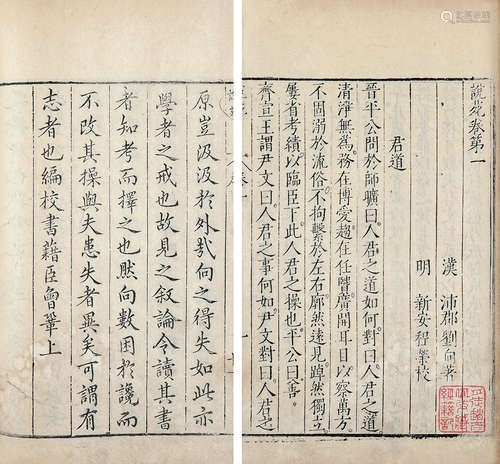 說苑卷第一
漢 沛郡劉向著
明 新安程榮校
君道
晉平公問於師曠曰人君之道如何對曰人君之道
清淨無為務在博愛趨在任賢廣開耳目以察萬方
不固溺於流俗不拘繫於左右廓然遠見踔然獨立
屢省考績以臨臣下此人君之操也平公曰善
齊宣王謂尹文曰人君之事何如尹文對曰人君之
原豈汲汲於外哉向之得失如此亦
學者之戒也故見之叙論令讀其書
者知考而擇之也然向數困於讒而
不改其操與夫患失者異矣可謂有
志者也編校書籍臣曾鞏上